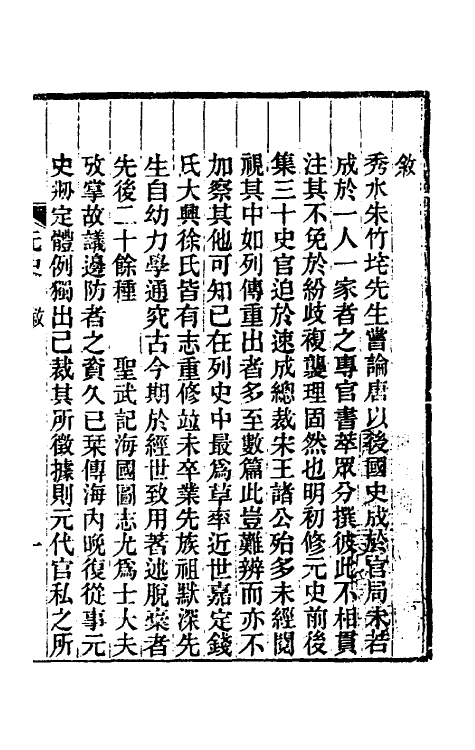 敘
秀水朱竹垞先生嘗論唐以後國史成於官局未若
成於一人一家者之專官書萃眾分撰彼此不相貫
注其不免於紛歧複襲理固然也明初修元史前後
集三十史官迫於速成總裁宋王諸公殆多未經閱
視其中如列傳重出者多至數篇此豈難辨而亦不
加察其他可知已在列史中最爲草率近世嘉定錢
氏大興徐氏皆有志重修竝未卒業先族祖默深先
生自幼力學通究古今期於經世致用著述脫稾者
先後二十餘種　　聖武記海國圖志尤爲士大夫
攷掌故議邊防者之資久已栞傳海內晚復從事元
史刱定體例獨出己裁其所徵據則元代官私之所
元史　敘　一